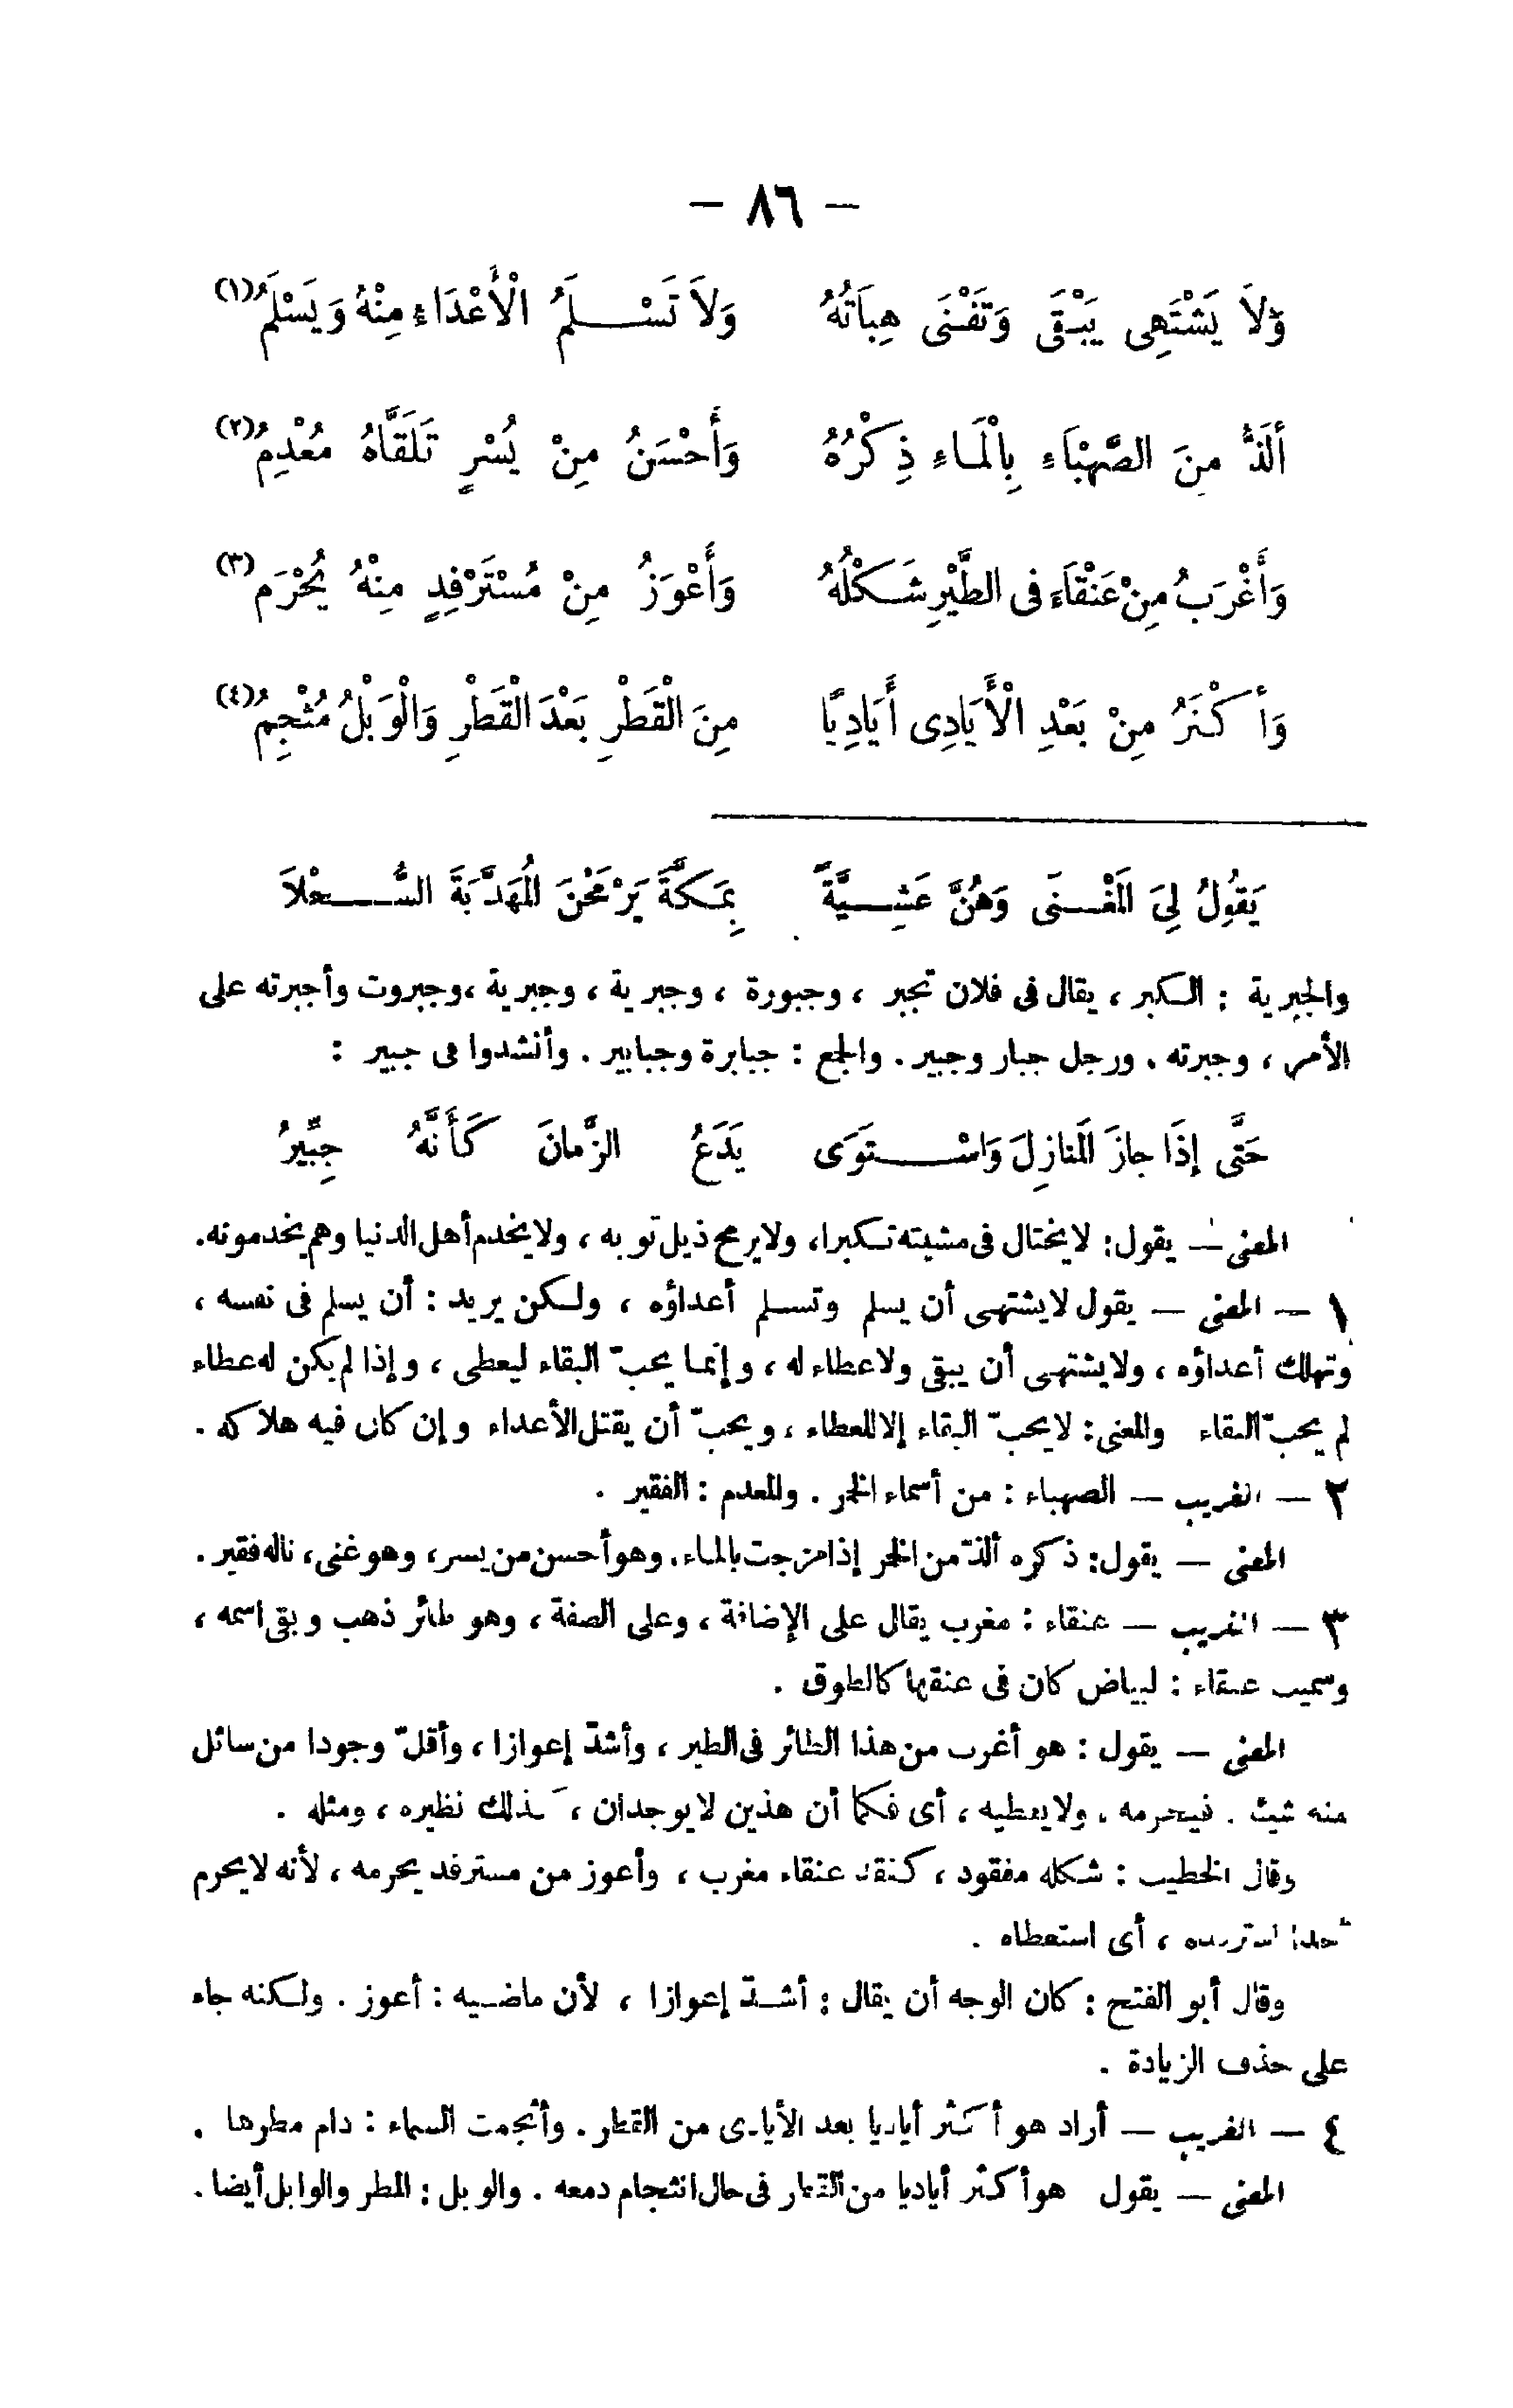 — ٨٦ —
وَلاَ يَشْتَهِى يَبْقَى وَتَفْنَى هِبَاتُهُ وَلاَ تَسْلَمُ الْأَعْدَاءِ مِنْهُ وَيَسْلَمُ(١)
أَلَذُّ مِنَ الصَّهْبَاءِ بِالْمَاءِ ذِكْرُهُ وَأَحْسَنُ مِنْ يُسْرٍ تَلَقَّاهُ مُعْدِمُ(٢)
وَأَغْرَبُ مِنْ عَنْقَاءَ فى الطَّيْرِ شَكْلُهُ وَأَعْوَزُ مِنْ مُسْتَرْفِدٍ مِنْهُ يُحْرَم(٣)
وَأَكْثَرُ مِنْ بَعْدِ الْأَيَادِى أَيَادِيًا مِنَ الْقَطْرِ بَعْدَ الْقَطْرِ وَالْوَبْلُ مُثْجِمُ(٤)
يَقُولُ لِىَ الْمَغْنَى وَهُنَّ عَشِيَّةً بِمَكَّةَ يَرْمَحْنَ الْمُهَدَّبَةَ السُّحْلاَ
والجبرية : الكبر ، يقال فى فلان تجبر ، وجبورة ، وجبرية ، وجبرية ، وجبروت وأجبرته على
الأمر ، وجبرته . ورجل جبار وجبير . والجمع : جبابرة وجبابير . وأنشدوا فى جبير :
حَتَّى إِذَا جازَ الْمنازِلَ وَاسْتَوَى يَدَعُ الزَّمانَ كَأَنَّهُ جِبِّيرُ
المعنى — يقول: لايختال فى مشيته تكبرا، ولايرمح ذيل ثوبه ، ولايخدم أهل الدنيا وهم يخدمونه.
١ — المعنى — يقول لايشتهى أن يسلم وتسلم أعداؤه ، ولكن يريد : أن يسلم فى نفسه ،
وتهلك أعداؤه ، ولايشتهى أن يبقى ولاعطاء له ، وإنما يحبّ البقاء ليعطى ، وإذا لم يكن له عطاء
لم يحبّ البقاء والمعنى: لايحبّ البقاء إلا للعطاء ، ويحبّ أن يقتل الأعداء وإن كان فيه هلاكه .
٢ — الغريب — الصهباء : من أسماء الخمر . والمعدم : الفقير .
المعنى — يقول: ذكره ألذّ من الخمر إذا مزجت بالماء. وهو أحسن من يسر، وهو غنى، ناله فقير .
٣ — الغريب — عنقاء : مغرب يقال على الإضافة ، وعلى الصفة ، وهو طائر ذهب وبقى اسمه ،
وسميت عنقاء : لبياض كان فى عنقها كالطوق .
المعنى — يقول : هو أغرب من هذا الطائر فى الطير ، وأشدّ إعوازا ، وأقلّ وجودا من سائل
منه شيئ . فيحرمه . ولايعطيه ، أى فكما أن هذين لايوجدان ، كذلك نظيره ، ومثله .
وقال الخطيب : شكله مفقود ، كفقد عنقاء مغرب ، وأعوز من مسترفد يحرمه ، لأنه لايحرم
أحدا استرفده ، أى استعطاه .
وقال أبو الفتح : كان الوجه أن يقال : أشدّ إعوازا ، لأن ماضيه : أعوز . ولكنه جاء
على حذف الزيادة .
٤ — الغريب — أراد هو أكثر أياديا بعد الأيادى من القطر. وأثجمت السماء : دام مطرها .
المعنى — يقول هو أكثر أياديا من القطر فى حال انثجام دمعه . والوبل : المطر والوابل أيضا .